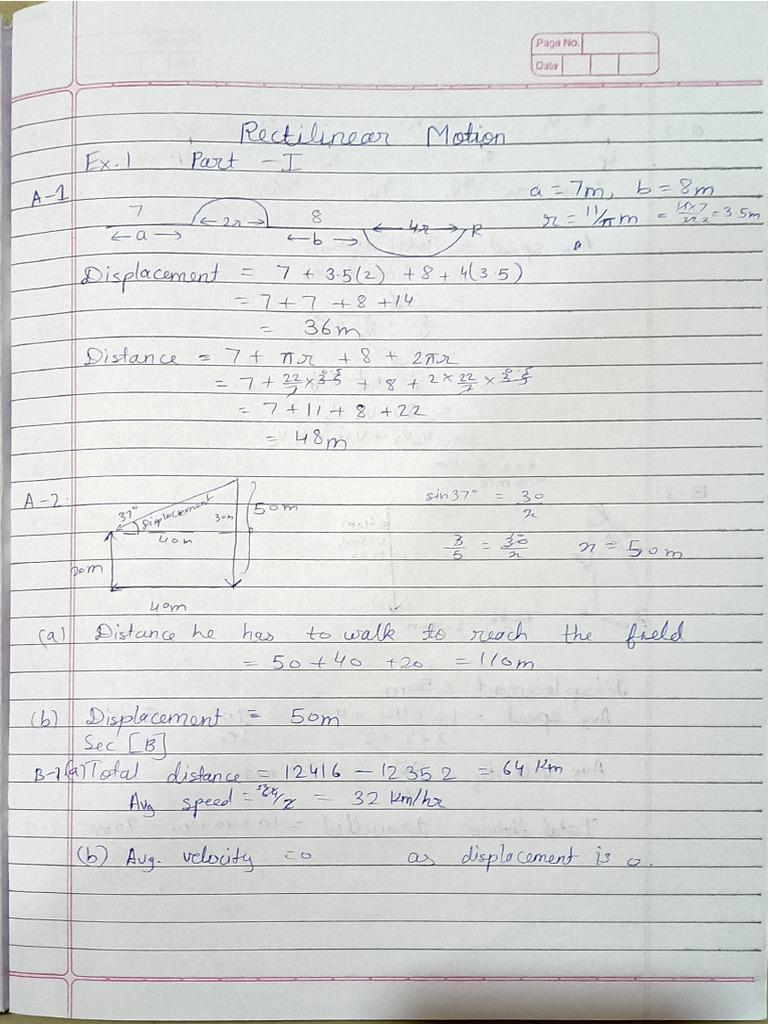 Page No.
Date
Rectilinear Motion
Ex.1 Part - I
A-1
a = 7m, b = 8m
r = 11/π m = 11×7/22 = 3.5m
7 ←2r→ 8 ←4r→ R
←a→ ←b→
Displacement = 7 + 3.5(2) + 8 + 4(3.5)
= 7 + 7 + 8 + 14
= 36m
Distance = 7 + πr + 8 + 2πr
= 7 + 22/7 × 3.5 + 8 + 2 × 22/7 × 3.5
= 7 + 11 + 8 + 22
= 48m
A-2.
37° displacement 30m 50m
40m
20m
40m
sin37° = 30/x
3/5 = 30/x x = 50m
(a) Distance he has to walk to reach the field
= 50 + 40 + 20 = 110m
(b) Displacement = 50m
Sec [B]
B-1(a) Total distance = 12416 - 12352 = 64 Km
Avg speed = 64/2 = 32 Km/hr
(b) Avg. velocity = 0 as displacement is 0.